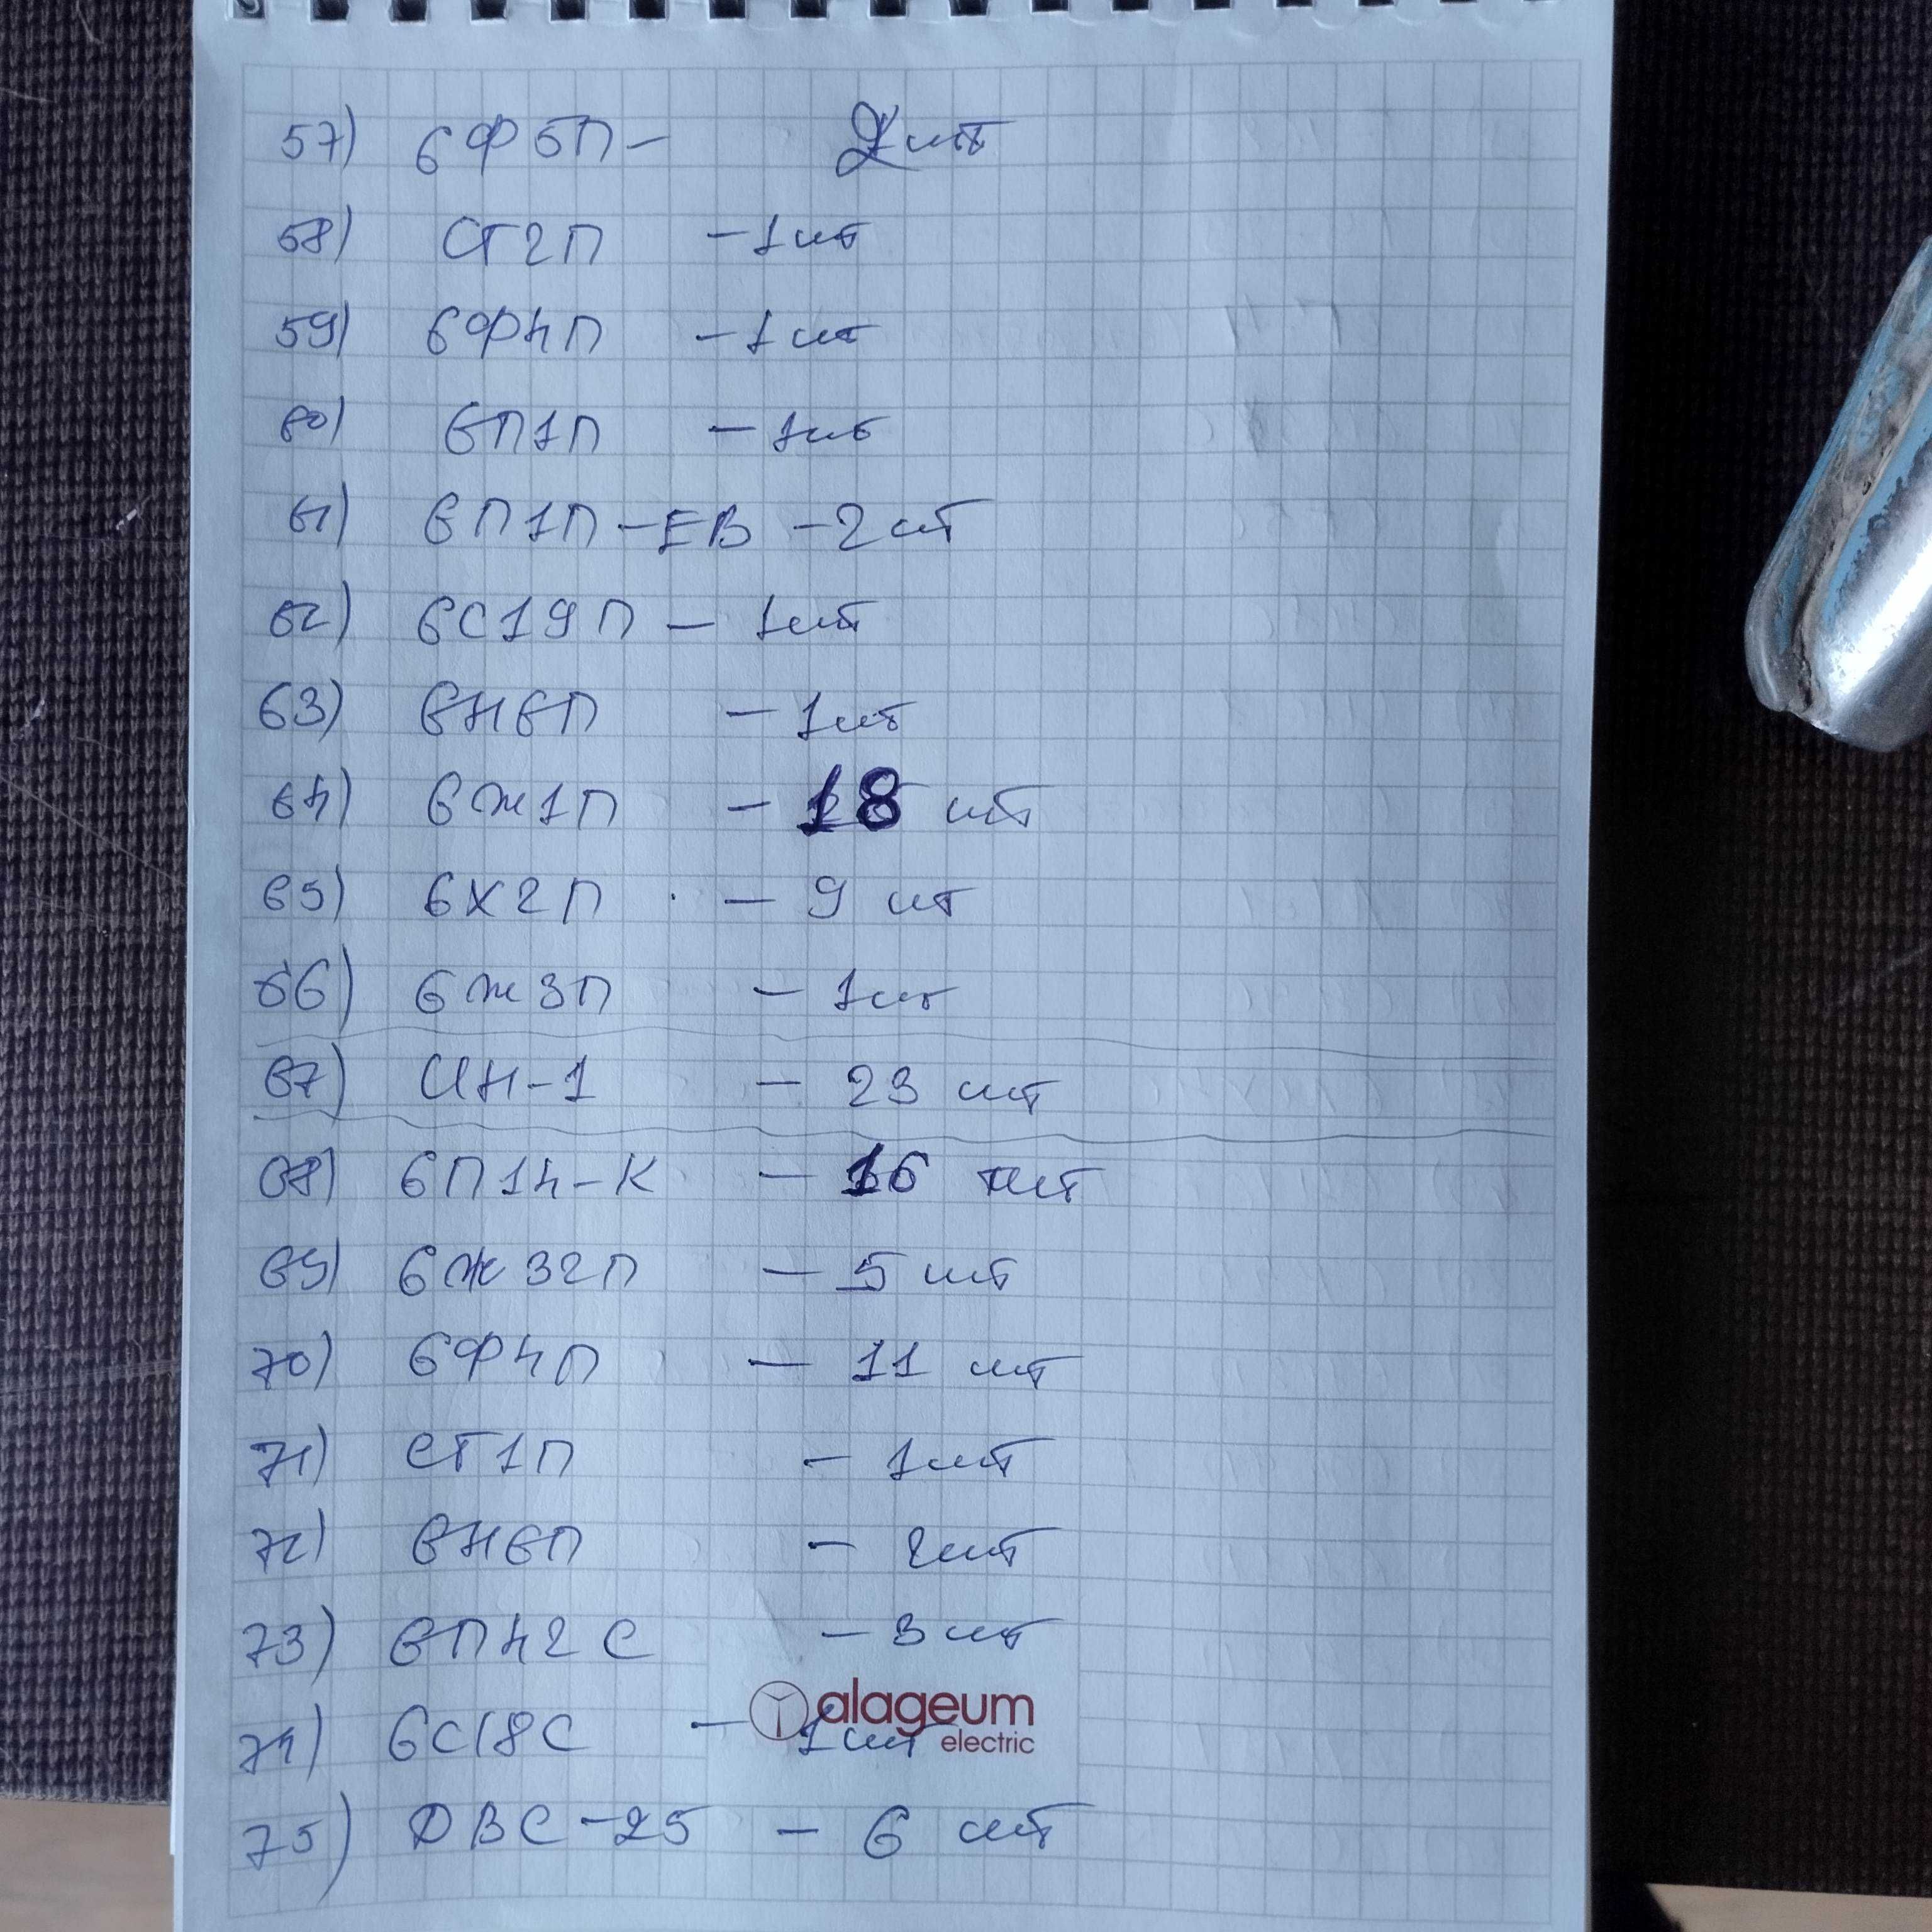 57) 6Ф5П - 2 шт
58) СГ2П - 1 шт
59) 6Ф4П - 1 шт
60) 6П1П - 1шт
61) 6П1П-ЕВ - 2 шт
62) 6С19П - 1шт
63) 6Н6П - 1шт
64) 6Ж1П - 18 шт
65) 6Х2П - 9 шт
66) 6Ж3П - 1шт
67) ИН-1 - 23 шт
68) 6П14-К - 16 шт
69) 6Ж32П - 5 шт
70) 6Ф4П - 11 шт
71) СГ1П - 1шт
72) 6Н6П - 2шт
73) 6П42С - 3 шт
alageum
electric
74) 6С18С - 1 шт
75) ДВС-25 - 6 шт